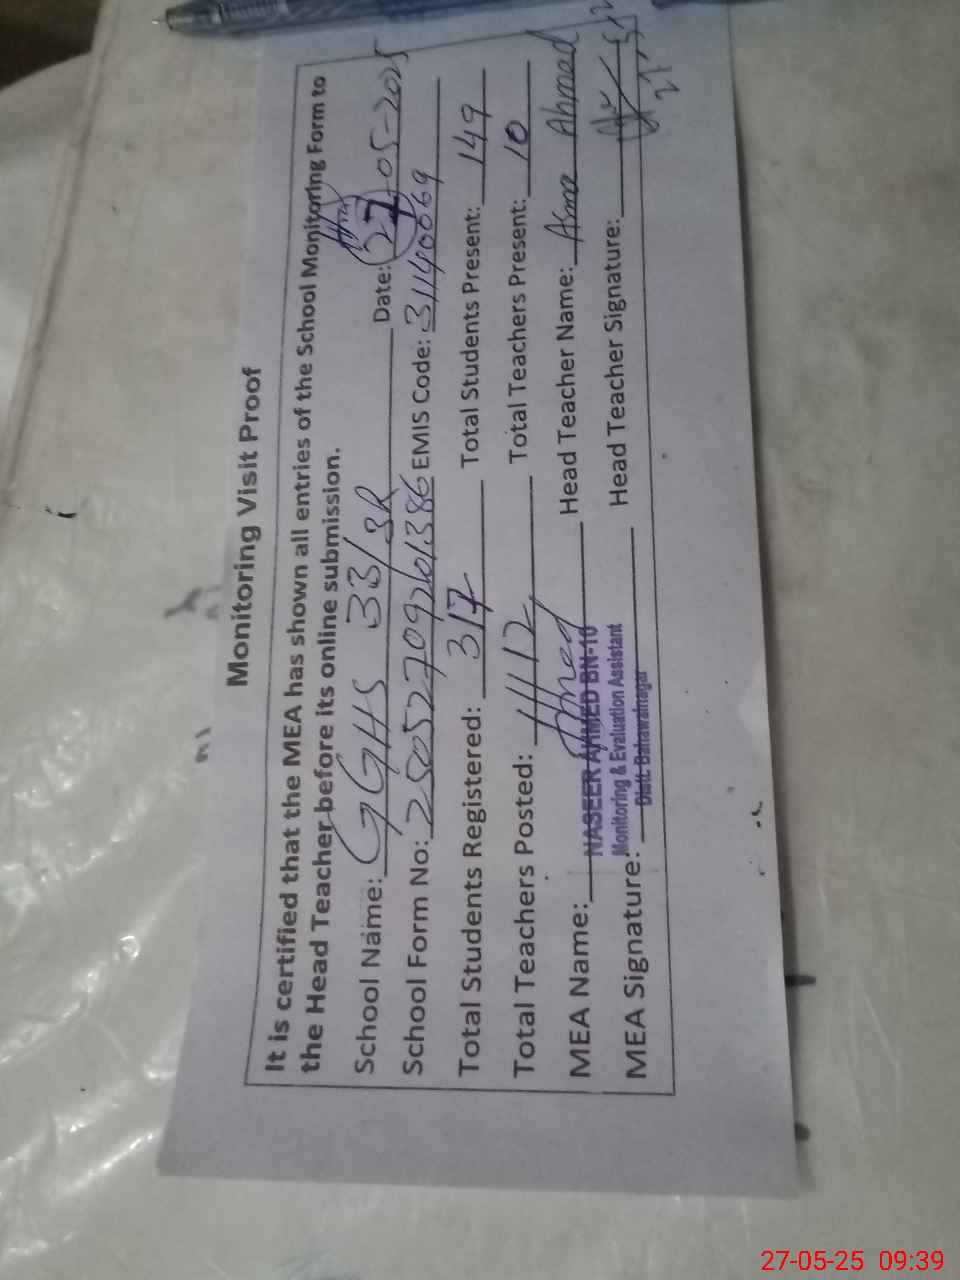 Monitoring Visit Proof
It is certified that the MEA has shown all entries of the School Monitoring Form to
the Head Teacher before its online submission.
School Name: GGHS 33/3R Date: 27-05-2025
School Form No: 25052709261386 EMIS Code: 31140069
Total Students Registered: 317 Total Students Present: 149
Total Teachers Posted: 12 Total Teachers Present: 10
MEA Name: NASEER AHMED BN-10 Head Teacher Name: Asma Ahmad
Monitoring & Evaluation Assistant
MEA Signature: Distt. Bahawalnagar Head Teacher Signature:
27-05-25 09:39